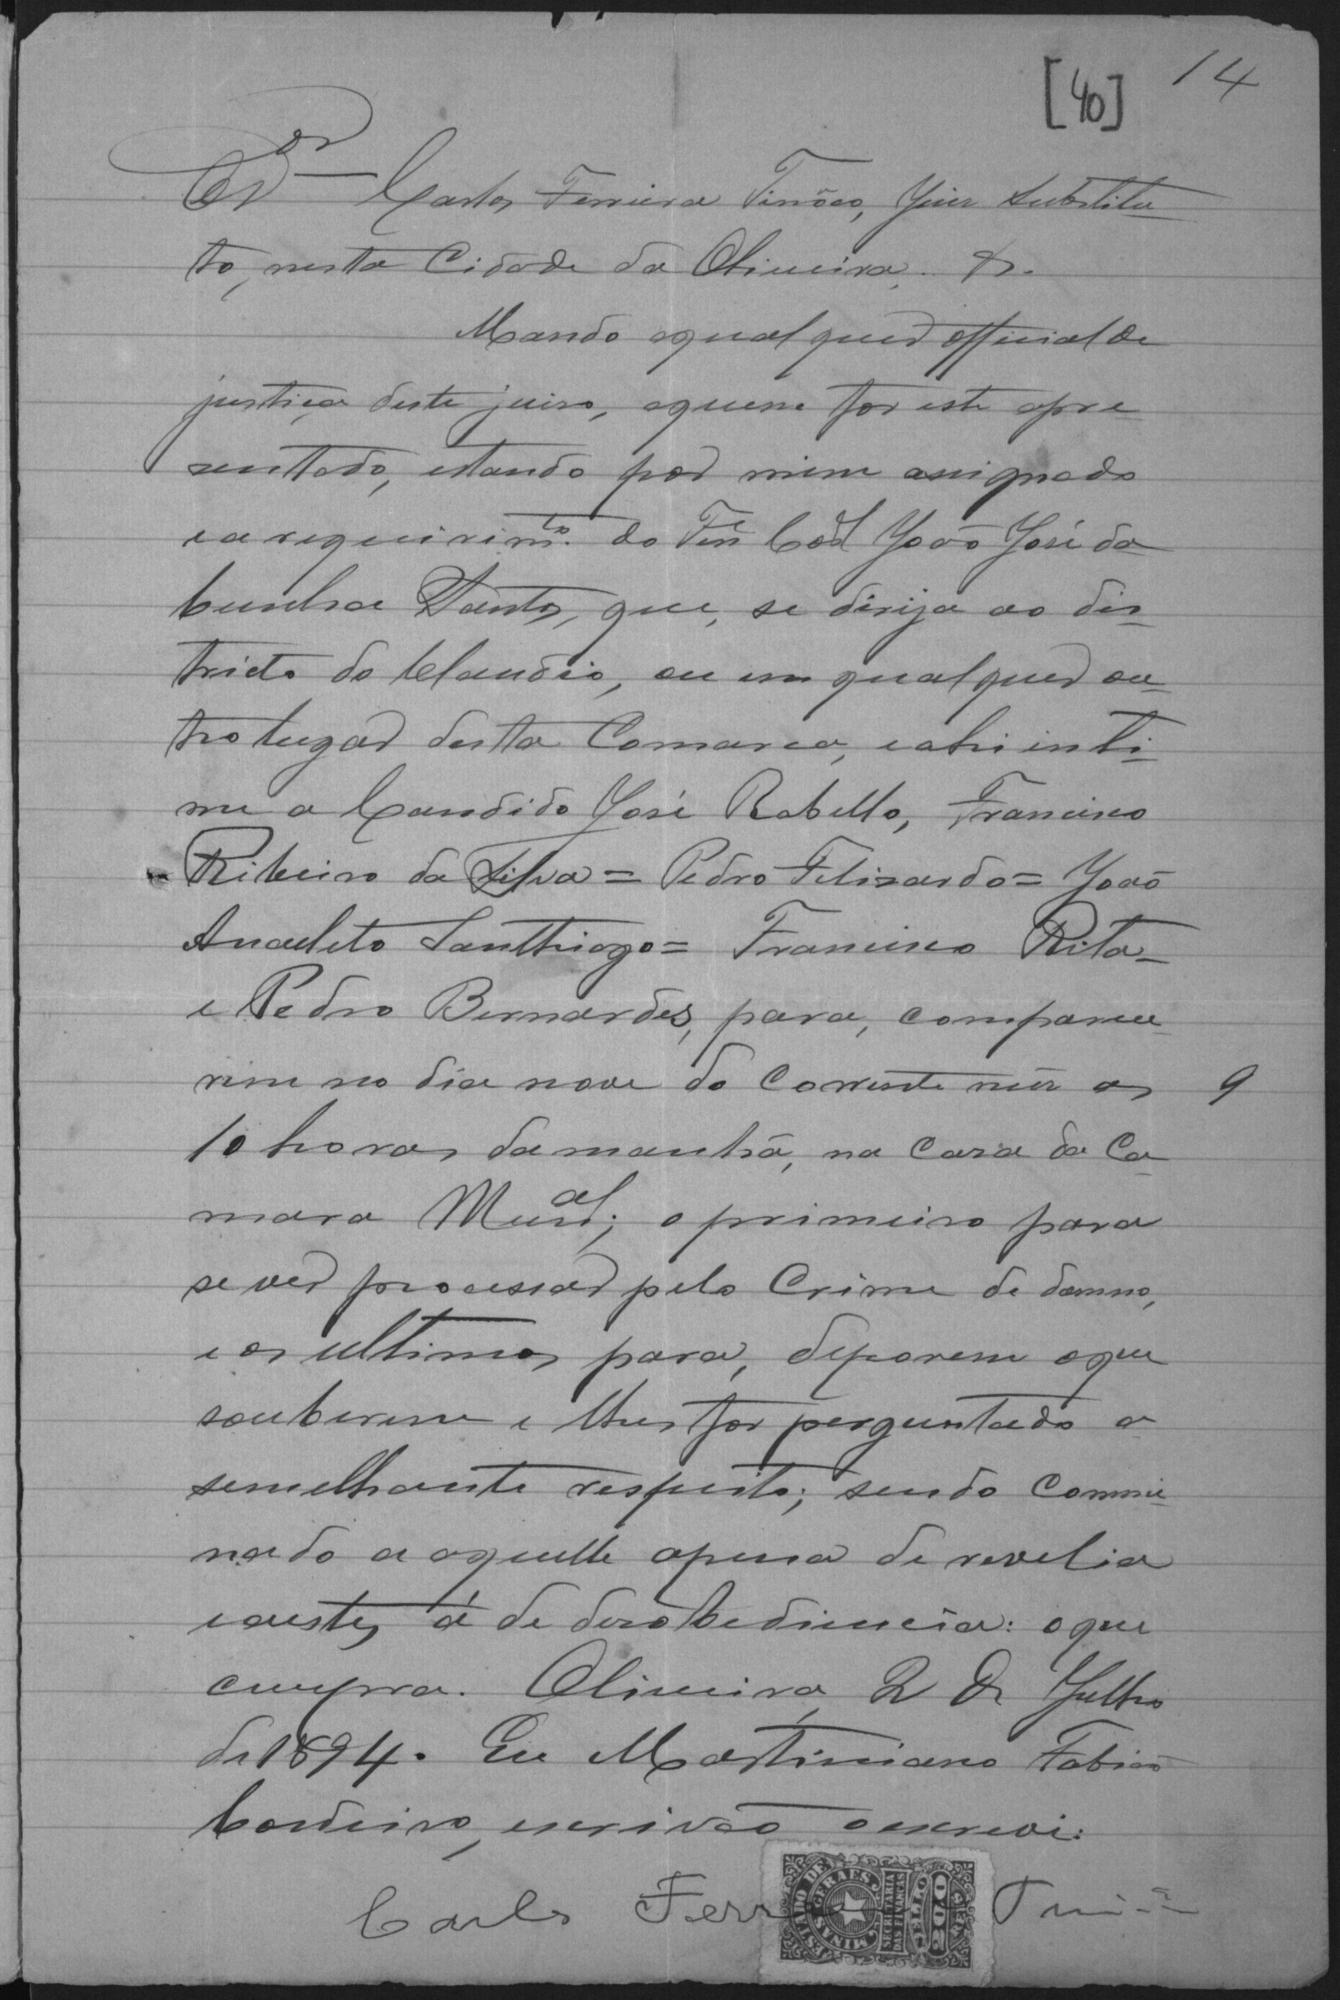 [40] 14
O Dor Carlos Ferreira Tinôco, Juiz Substitu-
to, nesta Cidade da Oliveira, &.
Mando aqualquer official de
justiça deste juiso, aquem for este apre-
sentado, estando por mim assignado
e a requeirimto. do Ten Cel João José da
Cunha Santos, que, se dirija ao dis-
tricto do Claudio, ou em qualquer ou-
tro lugar desta Comarca, e ahi inti-
me a Candido José Rabello, Francisco
Ribeiro da Silva = Pedro Felizardo = João
Anacleto Santhiago = Francisco Rita -
e Pedro Bernardes, para, comparece-
rem no dia nove do Corrente mez as 9
10 horas da manhã, na Casa da Ca-
mara Munal; o primeiro para
se ver processar pelo Crime de damno,
e os ultimos para, deporem o que
souberem e lhes for perguntado a
semelhante respeito; sendo Commi-
nado a aquelle apena de revelia
e aestes á de desobediencia: o que
cumpra. Oliveira 2 de Julho
de 1894. Eu Martiniano Fabião
Cordeiro, escrivão o escrevi:
Carlos Ferreira Tinôco
ESTADO DE MINAS GERAES
SECRETARIA DAS FINANÇAS
SELLO
200
REIS